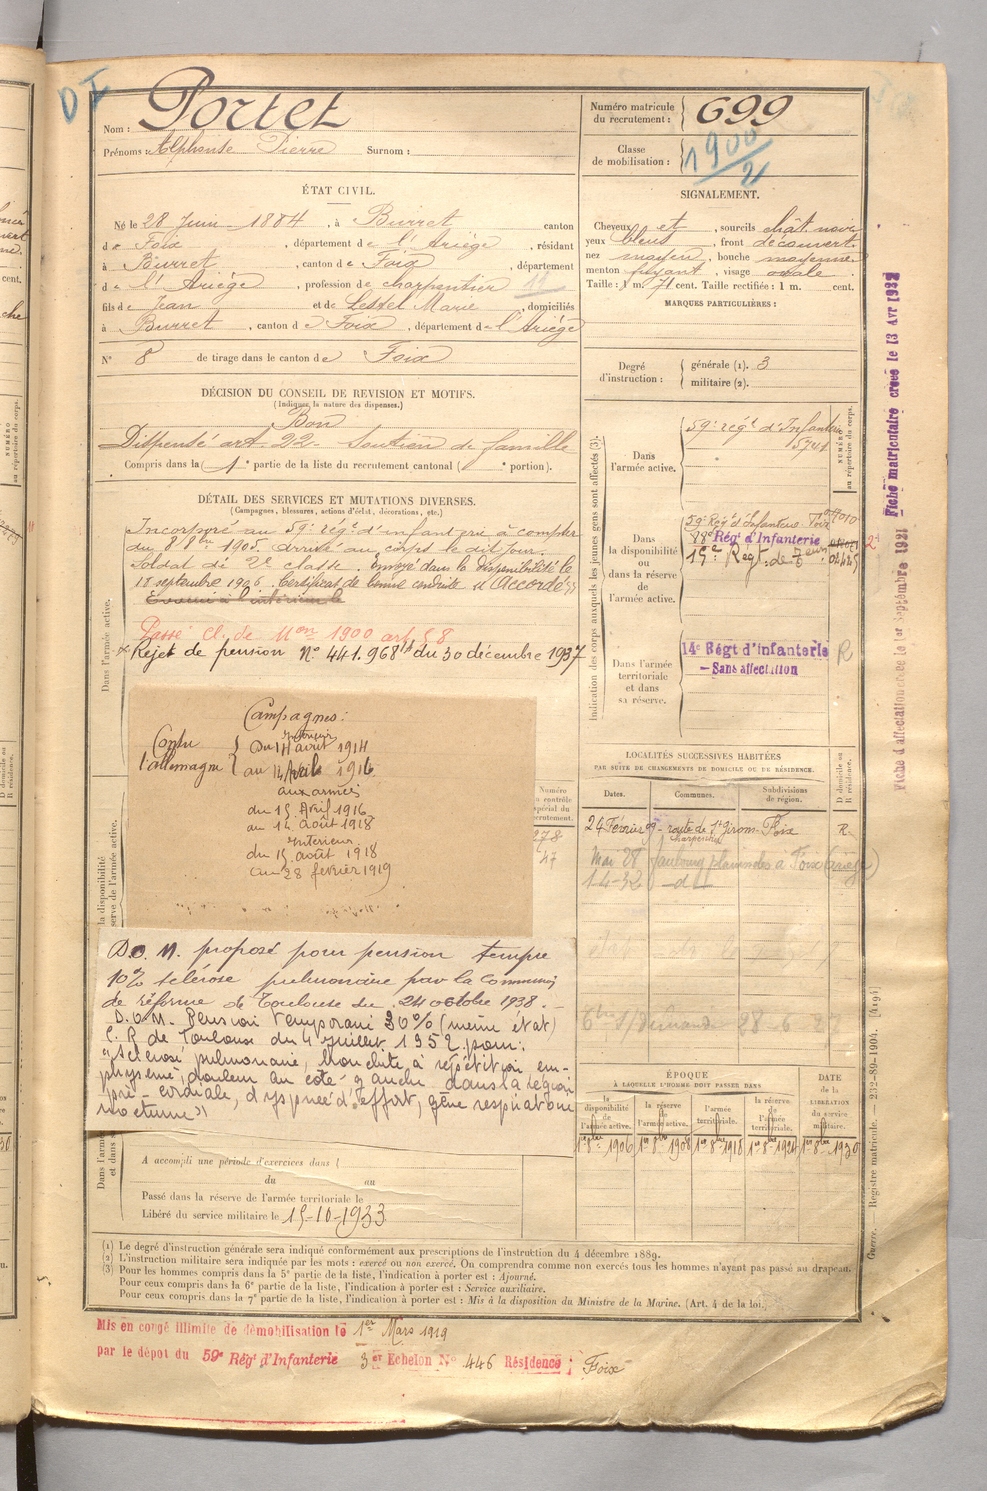 D I
Nom : Portet
Prénoms : Alphonse Pierre Surnom :
Numéro matricule du recrutement : 699
Classe de mobilisation : 1900/2
ÉTAT CIVIL.
Né le 28 Juin 1884, à Burret canton
de Foix, département de l'Ariège, résidant
à Burret, canton de Foix, département
de l'Ariège, profession de charpentier 11
fils de Jean et de Lestel Marie, domiciliés
à Burret, canton de Foix, département de l'Ariège
N° 8 de tirage dans le canton de Foix
SIGNALEMENT.
Cheveux et, sourcils chât noir
yeux bleus, front découvert
nez moyen, bouche moyenne
menton fuyant, visage ovale
Taille : 1 m. 71 cent. Taille rectifiée : 1 m. cent.
MARQUES PARTICULIÈRES :
Degré d'instruction : générale (1). 3
militaire (2).
DÉCISION DU CONSEIL DE REVISION ET MOTIFS.
(Indiquer la nature des dispenses.)
Bon
Dispensé art. 22 - Soutien de famille
Compris dans la 1e partie de la liste du recrutement cantonal ( e portion).
DÉTAIL DES SERVICES ET MUTATIONS DIVERSES.
(Campagnes, blessures, actions d'éclat, décorations, etc.)
Incorporé au 59e régt d'infanterie à compter
du 8 8bre 1905. Arrivé au corps le dit jour.
Soldat de 2e classe. Envoyé dans la disponibilité le
18 septembre 1906. Certificat de bonne conduite "Accordé"
Passé cl. de Mon 1900 art 58
Rejet de pension N° 441.968 du 30 décembre 1937
Campagnes :
Contre l'allemagne
Intérieur
du 14 août 1914
au 14 Avril 1916
aux armées
du 15 Avril 1916
au 14 août 1918
Intérieur
du 15 août 1918
au 28 février 1919
Numéro au contrôle spécial du recrutement.
278
47
D.O.M. proposé pour pension tempre
10% sclérose pulmonaire par la Commion
de réforme de Toulouse du 24 octobre 1938.
D.O.M. Pension Temporaire 30% (même état)
C. R de Toulouse du 4 juillet 1952 pour :
"sclérose pulmonaire, bronchite à répétition em-
physème, douleur au côté gauche dans la région
pré-cordiale, dyspnée d'effort, gêne respiratoire
nocturne"
A accompli une période d'exercices dans
du au
Passé dans la réserve de l'armée territoriale le
Libéré du service militaire le 15-10-1933
Dans l'armée active.
la disponibilité
Indication des corps auxquels les jeunes gens sont affectés (3).
NUMÉRO au répertoire du corps.
Dans l'armée active.
59e régt d'Infanterie
5741
Dans la disponibilité ou dans la réserve de l'armée active.
59e Régt d'Infanterie Foix
Régt d'Infanterie
Dans l'armée territoriale et dans sa réserve.
14e Régt d'infanterie
- Sans affectation
R
LOCALITÉS SUCCESSIVES HABITÉES
PAR SUITE DE CHANGEMENTS DE DOMICILE OU DE RÉSIDENCE.
Dates. Communes. Subdivisions de région. D domicile ou R résidence.
24 Février 09 - route de St Girons Foix R
charpentier
Mai 28 faubourg planissoles à Foix (ariège)
1-4-32 -d-
ÉPOQUE
À LAQUELLE L'HOMME DOIT PASSER DANS
la disponibilité de l'armée active. la réserve de l'armée active. l'armée territoriale. la réserve de l'armée territoriale.
DATE de la LIBÉRATION du service militaire.
1er 8bre 1906 1er 8bre 1908 1er 8bre 1918 1er 8bre 1924 1er 8bre 1930
(1) Le degré d'instruction générale sera indiqué conformément aux prescriptions de l'instruction du 4 décembre 1889.
(2) L'instruction militaire sera indiquée par les mots : exercé ou non exercé. On comprendra comme non exercés tous les hommes n'ayant pas passé au drapeau.
(3) Pour les hommes compris dans la 5e partie de la liste, l'indication à porter est : Ajourné.
Pour ceux compris dans la 6e partie de la liste, l'indication à porter est : Service auxiliaire.
Pour ceux compris dans la 7e partie de la liste, l'indication à porter est : Mis à la disposition du Ministre de la Marine. (Art. 4 de la loi.)
Mis en congé illimité de démobilisation le 1er Mars 1919
par le dépôt du 59e Régt d'Infanterie 3er Echelon N° 446 Résidence : Foix
Fiche d'affectation créée le 1er Septembre 1931 Fiche matriculaire créée le 13 Avr 1932
Guerre. — Registre matricule. — 232-89-1904. [4194]